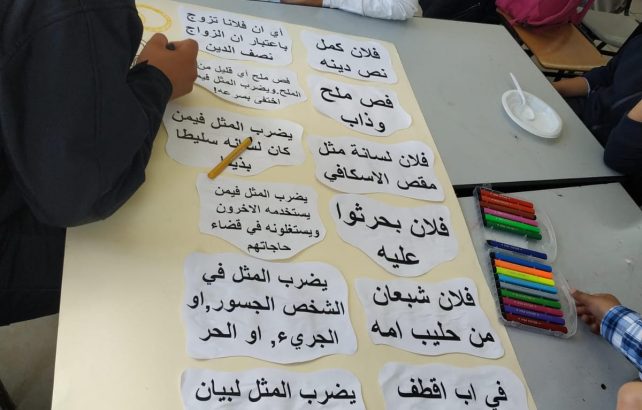 فلان كمل
نص دينه
أي ان فلانا تزوج
باعتبار ان الزواج
نصف الدين
فص ملح
وذاب
فص ملح أي قليل من
الملح.ويضرب المثل فيمن
اختفى بسرعه!
فلان لسانة مثل
مقص الاسكافي
يضرب المثل فيمن
كان لسانه سليطا
بذيئا
فلان بحرثوا
عليه
يضرب المثل فيمن
يستخدمه الاخرون
ويستغلونه في قضاء
حاجاتهم
فلان شبعان
من حليب امه
يضرب المثل في
الشخص الجسور,او
الجريء, او الحر
في اب اقطف
يضرب المثل لبيان